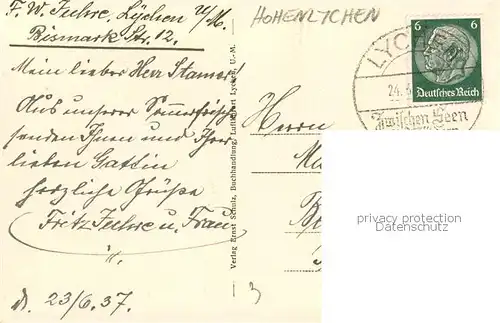 F. W. Fuhre, Lychen U/M.
Bismark Str. 12.
HOHENLYCHEN
Mein lieber Herr Stamer!
Aus unserer Sommerfrische
senden Ihnen und Ihrer
lieben Gattin
herzliche Grüße
Fritz Fuhre u. Frau
d. 23/6.37.
Verlag Ernst Schulz, Buchhandlung, Luftkurort Lychen, U.-M.
13
Herrn
6 6
Deutsches Reich
LYCHEN
24.6
Zwischen Seen
privacy protection
Datenschutz